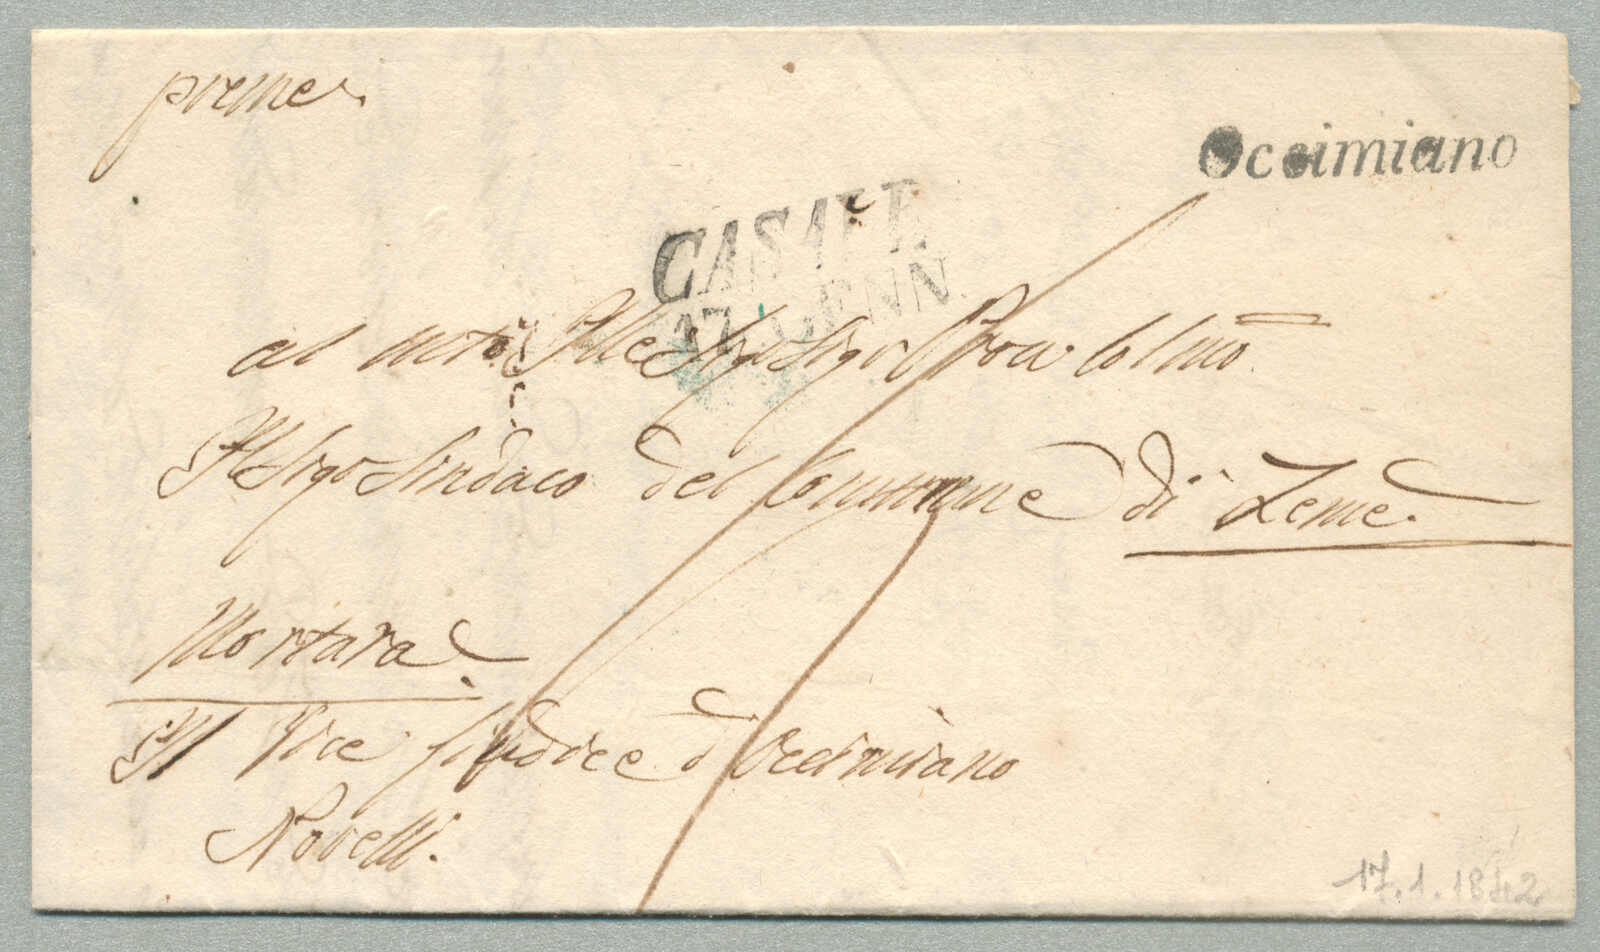 preme
Occimiano
CASALE
17 GENN
al molto Ille Sigr Sigr Pron Colmo
Il Sigr Sindaco del Comune di Zeme.
Mortara
Il Vice Giudice d'Occimiano
Novelli.
17.1.1842